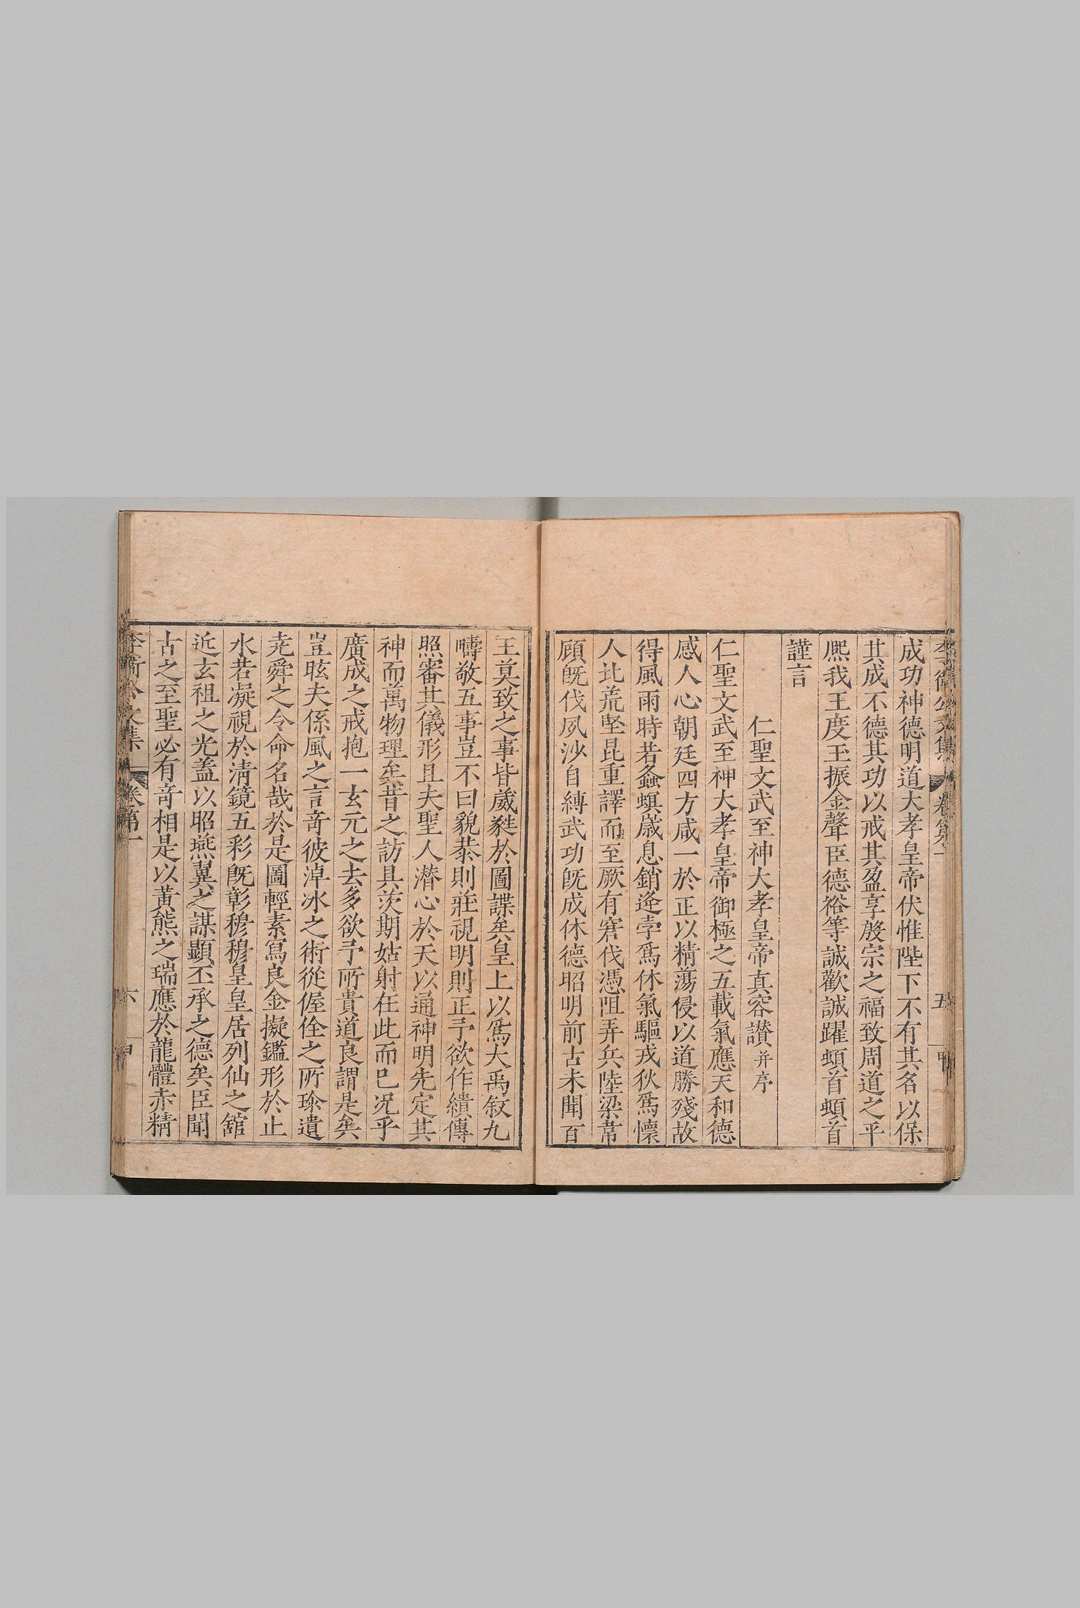 李衛公文集 卷第一 五
成功神德明道大孝皇帝伏惟陛下不有其名以保
其成不德其功以戒其盈享殷宗之福致周道之平
熈我王度玉振金聲臣德裕等誠歡誠躍頓首頓首
謹言
仁聖文武至神大孝皇帝真容讃并序
仁聖文武至神大孝皇帝御極之五載氣應天和德
感人心朝廷四方咸一於正以精蕩侵以道勝殘故
得風雨時若螽螟蔵息銷沴孛爲休氣驅戎狄爲懷
人北荒堅昆重譯而至厥有窮伐憑阻弄兵陸梁芾
顧旣伐夙沙自縛武功旣成休德昭明前古未聞百
王莫致之事皆葳蕤於圖諜矣皇上以爲大禹敘九
疇敬五事豈不曰貌恭則莊視明則正予欲作繢傳
照審其儀形且夫聖人潜心於天以通神明先定其
神而萬物理至昔之訪具茨期姑射在此而已况乎
廣成之戒抱一玄元之去多欲予所貴道良謂是矣
豈眩夫係風之言竒彼淖冰之術從偓佺之所珍遺
尭舜之令命名哉於是圖輕素寫良金擬鑑形於止
水若凝視於淸鏡五彩旣彰穆穆皇皇居列仙之舘
近玄祖之光葢以昭燕翼之謀顯丕承之德矣臣聞
古之至聖必有竒相是以黃熊之瑞應於龍體赤精
李衛公文集 卷第一 六